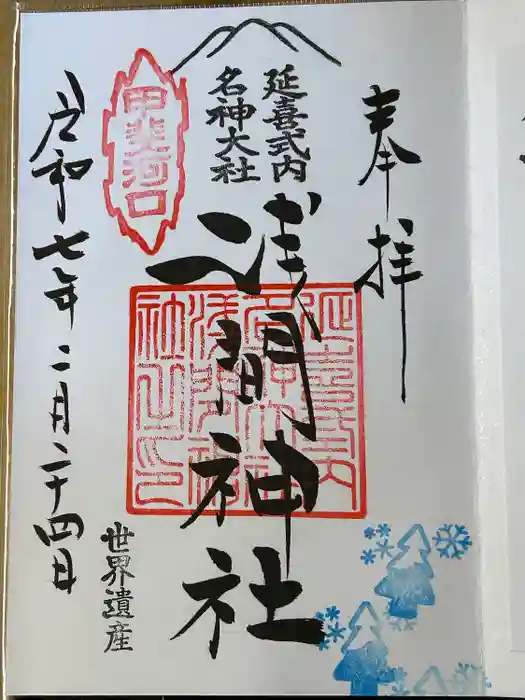 奉拝
延喜式内
名神大社
浅間神社
甲斐河口
延喜式内
名神大社
浅間神
社之印
令和七年二月二十四日
世界遺産